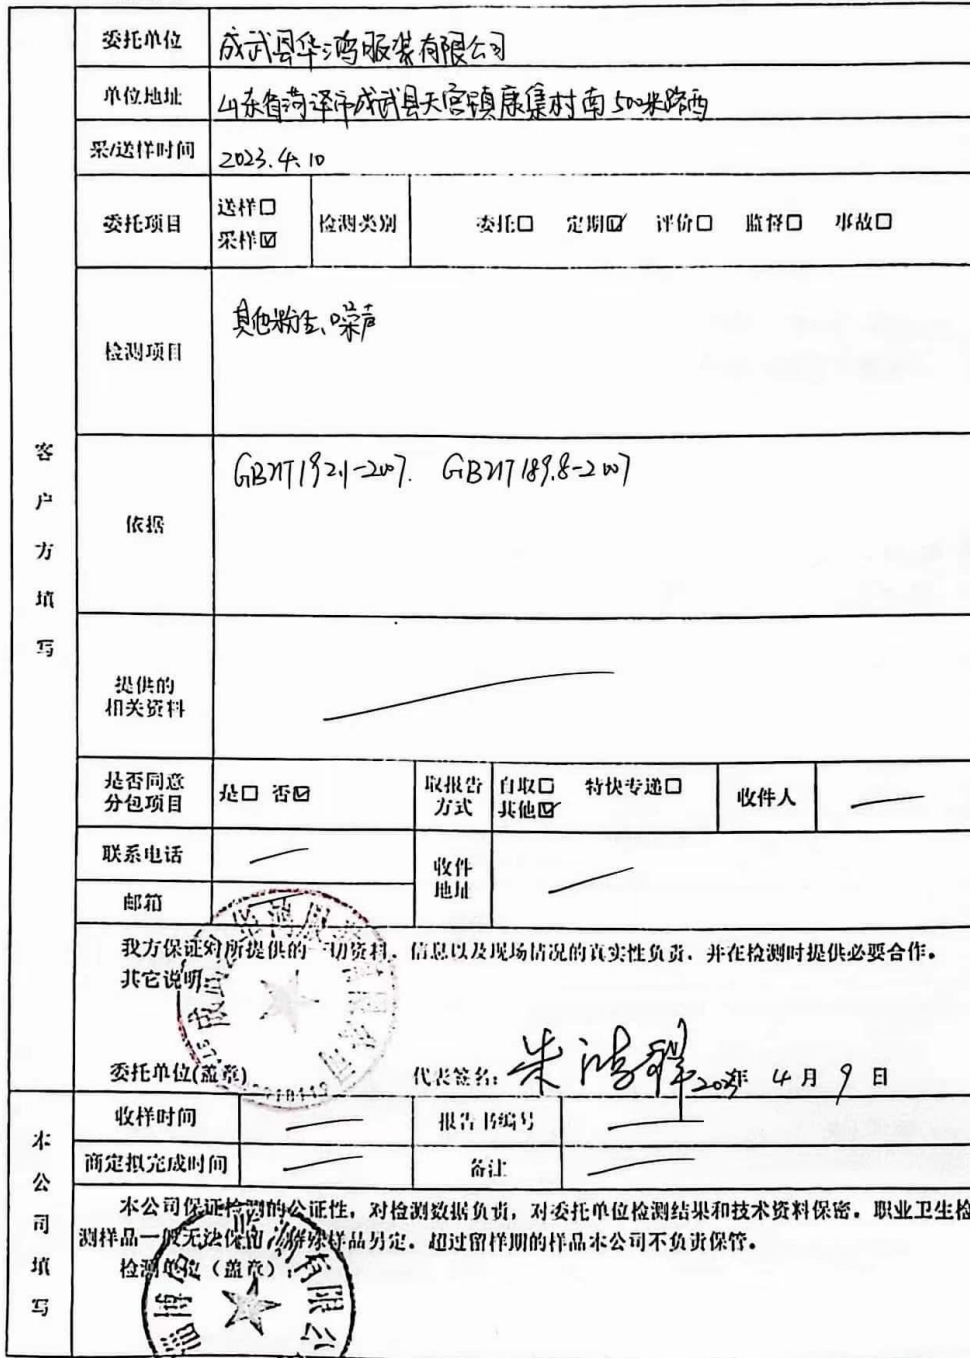 委托单位 成武县华鸿服装有限公司
单位地址 山东省菏泽市成武县天宫镇康集村南500米路西
采/送样时间 2023.4.10
委托项目 送样☐ 采样☑ 检测类别 委托☐ 定期☑ 评价☐ 监督☐ 事故☐
检测项目 其他粉尘、噪声
客户方填写
依据 GBZ/T192.1-2007. GBZ/T189.8-2007
提供的
相关资料
是否同意
分包项目 是☐ 否☑ 取报告
方式 自取☐ 特快专递☐
其他☑ 收件人
联系电话 收件
地址
邮箱
我方保证对所提供的一切资料、信息以及现场情况的真实性负责，并在检测时提供必要合作。
其它说明:
委托单位(盖章) 代表签名: 朱鸿 2023年 4月 9日
本公司填写
收样时间 报告书编号
商定拟完成时间 备注
本公司保证检测的公证性，对检测数据负责，对委托单位检测结果和技术资料保密。职业卫生检
测样品一般无法保留，特殊样品另定，超过留样期的样品本公司不负责保管。
检测单位（盖章）:
有限公